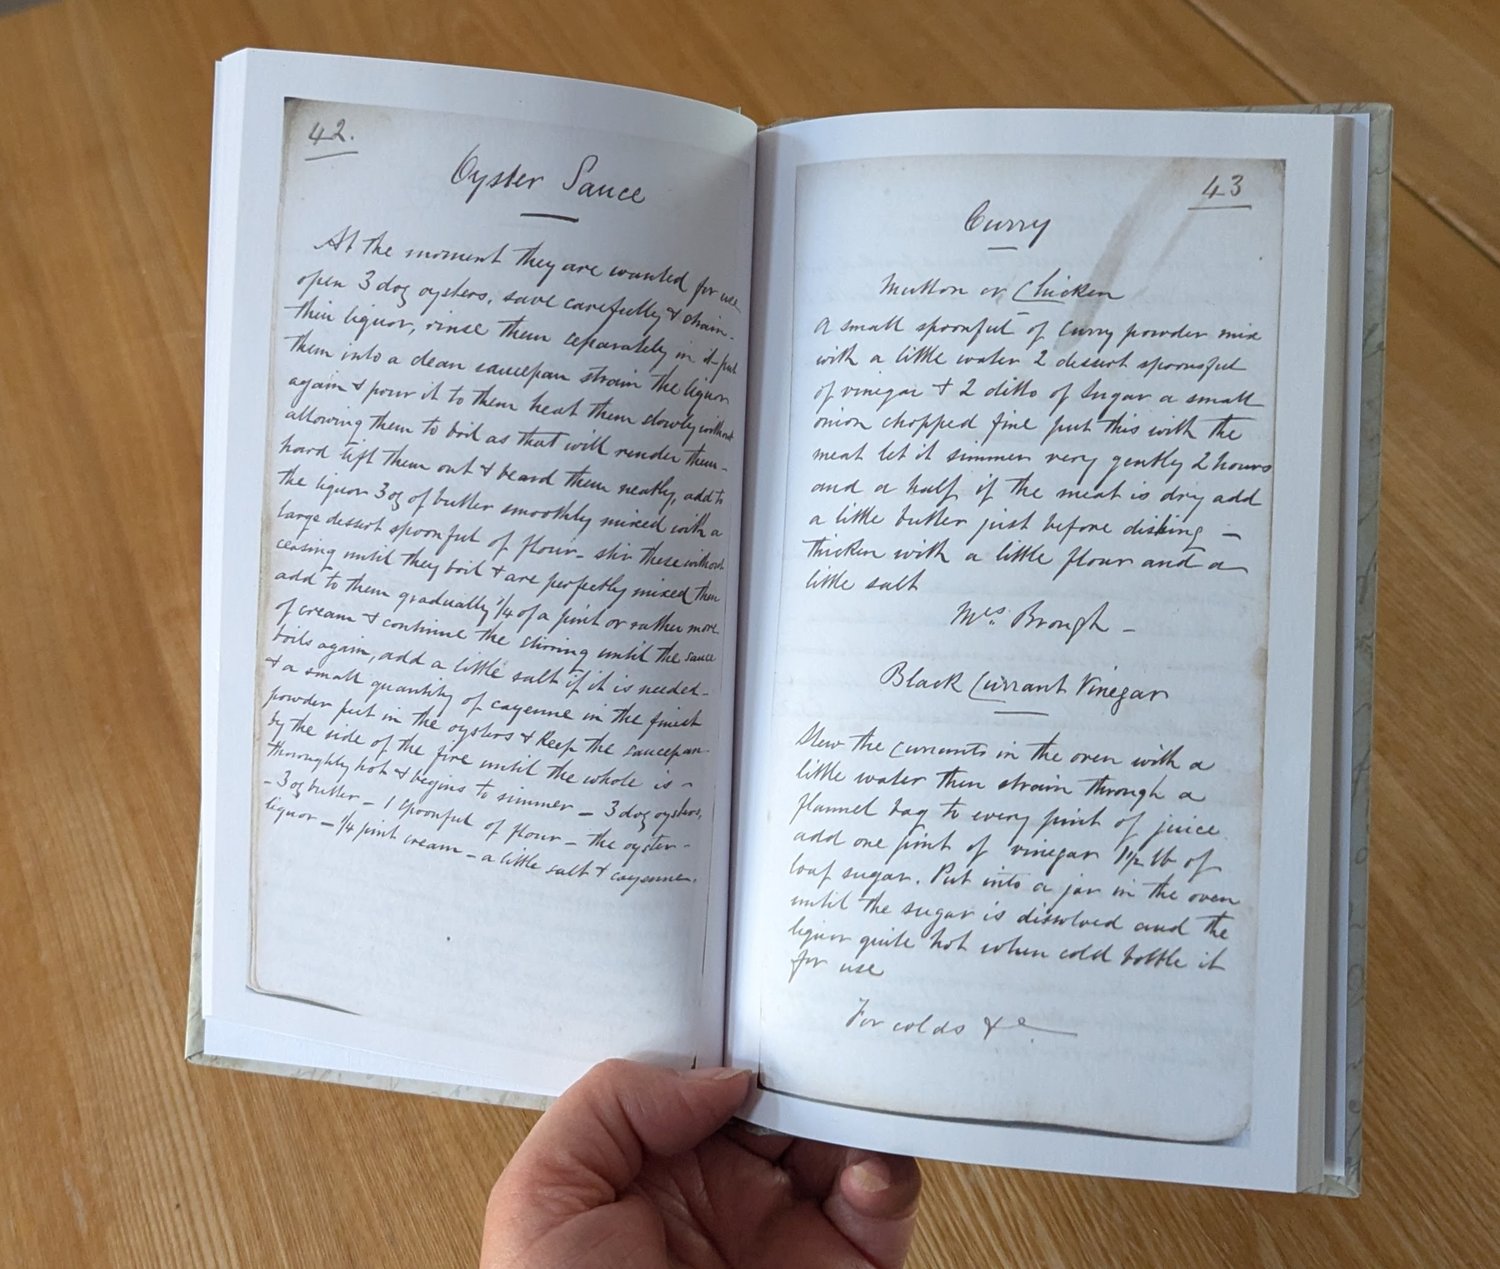 42.
Oyster Sauce
At the moment they are wanted for use
open 3 doz oysters, save carefully & strain
their liquor, rinse them seperately in it – put
them into a clean saucepan strain the liquor
again & pour it to them heat them slowly without
allowing them to boil as that will render them –
hard lift them out & beard them neatly, add to
the liquor 3 oz of butter smoothly mixed with a
large dessert spoonful of flour – stir these without
ceasing until they boil & are perfectly mixed then
add to them gradually 1/4 of a pint or rather more
of cream & continue the stirring until the sauce
boils again, add a little salt if it is needed –
& a small quantity of cayenne in the finest
powder put in the oysters & keep the saucepan
by the side of the fire until the whole is –
thoroughly hot & begins to simmer – 3 doz oysters,
– 3 oz butter – 1 spoonful of flour – the oyster –
liquor – 1/4 pint cream – a little salt & cayenne.
43
Curry
Mutton or Chicken
A small spoonful of curry powder mix
with a little water 2 dessert spoonsful
of vinegar & 2 ditto of sugar a small
onion chopped fine put this with the
meat let it simmer very gently 2 hours
and a half, if the meat is dry add
a little butter just before dishing –
thicken with a little flour and a
little salt
Mrs. Brough –
Black Currant Vinegar
Stew the currants in the oven with a
little water then strain through a
flannel bag to every pint of juice
add one pint of vinegar 1 1/2 lb of
loaf sugar. Put into a jar in the oven
until the sugar is dissolved and the
liquor quite hot when cold bottle it
for use
For colds &c